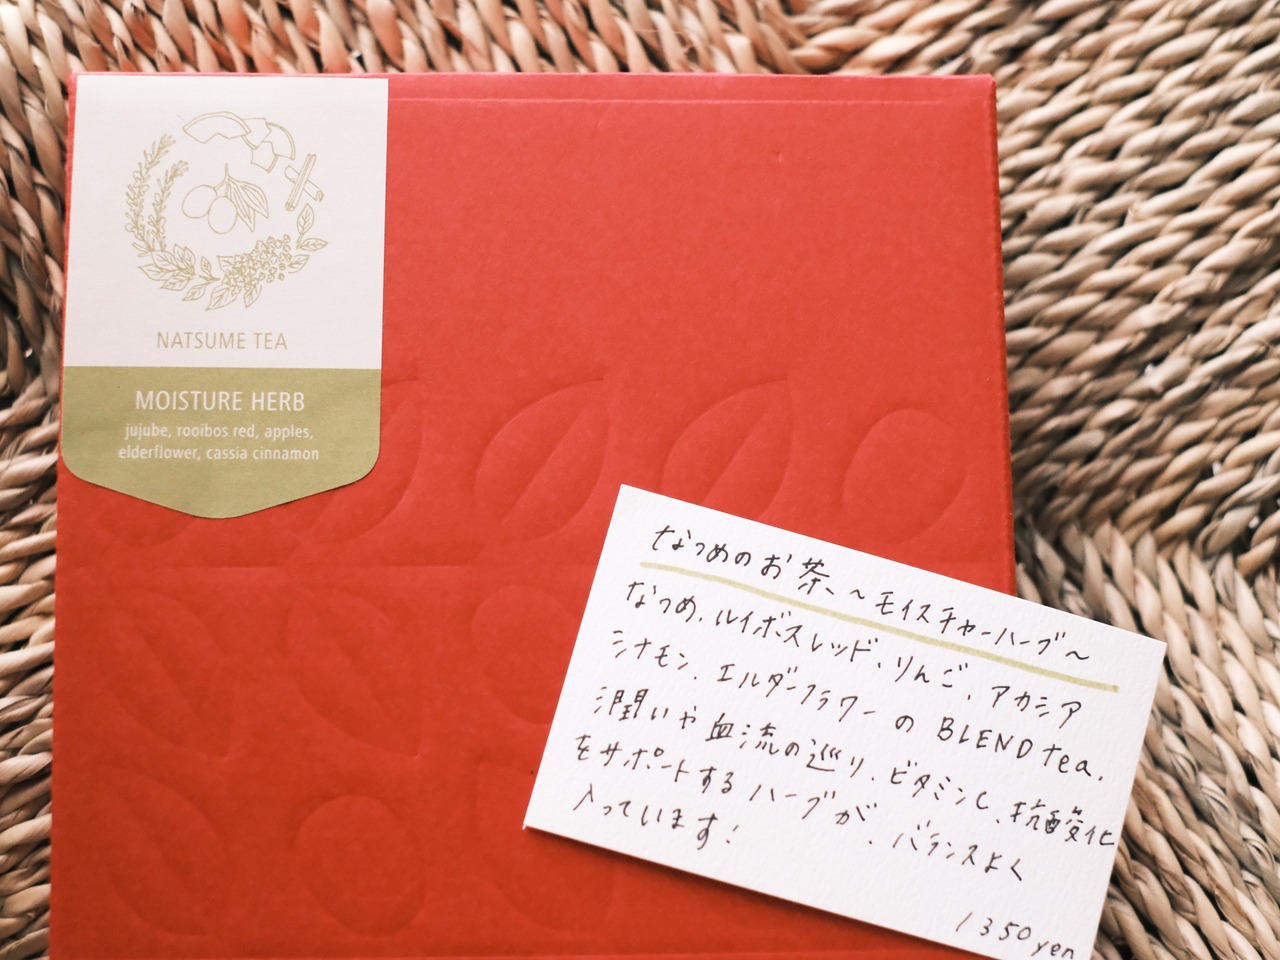 NATSUME TEA
MOISTURE HERB
jujube, rooibos red, apples,
elderflower, cassia cinnamon
なつめのお茶、〜モイスチャーハーブ〜
なつめ、ルイボスレッド、りんご、アカシア
シナモン、エルダーフラワーの BLEND tea.
潤いや血流の巡り、ビタミンC、抗酸変化
をサポートするハーブが、バランスよく
入っています!
1350yen